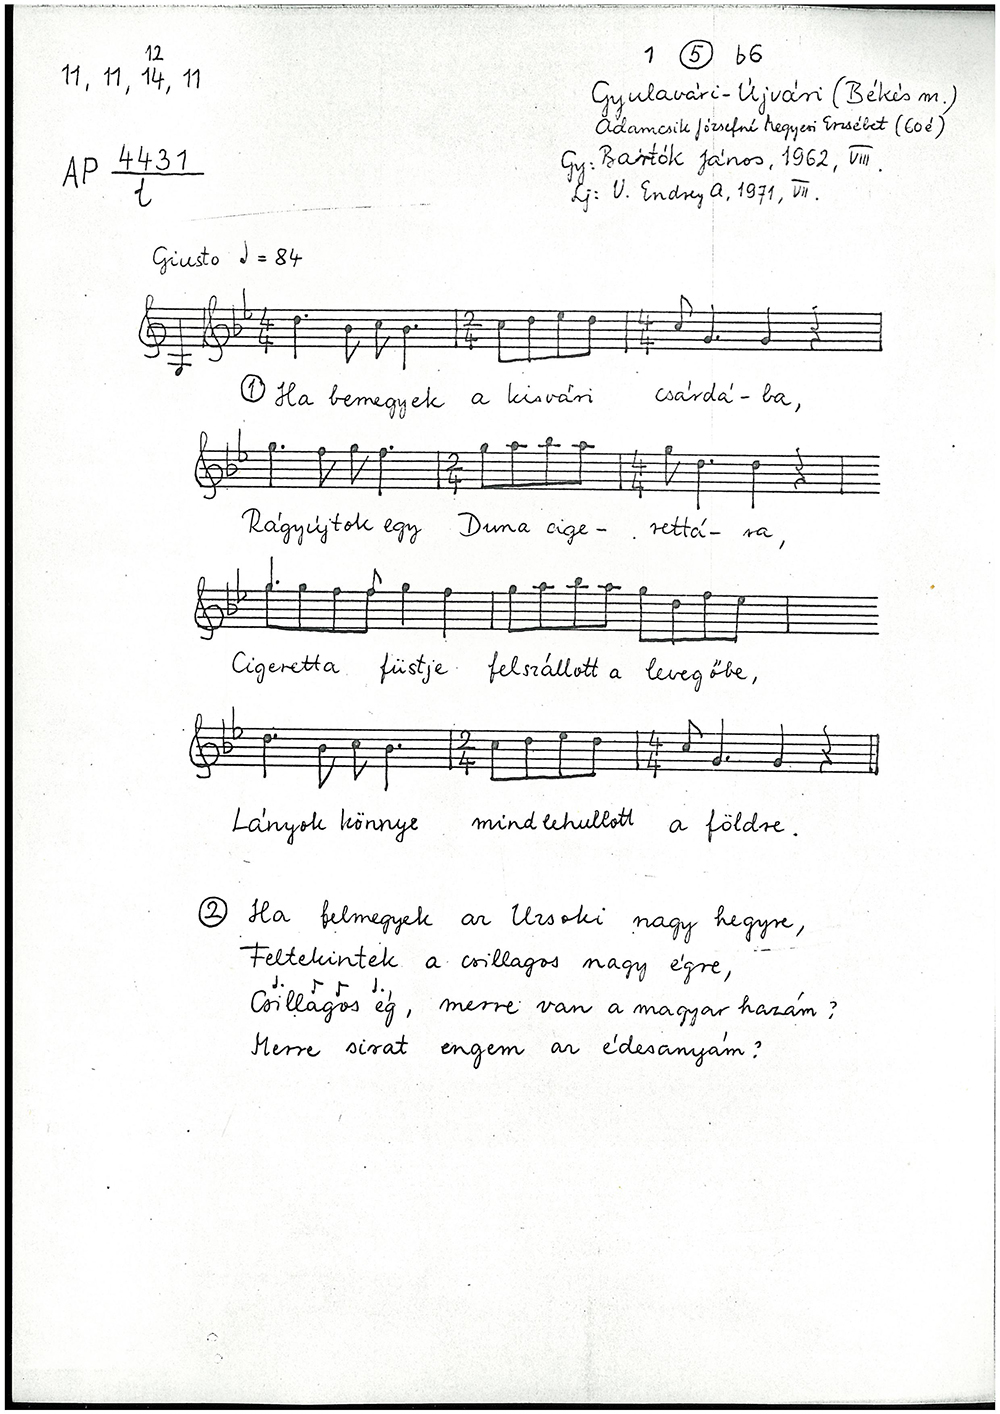 12
11, 11, 14, 11
1 5 b6
Gyulavári-Újvári (Békés m.)
Ádámcsik Józsefné Megyeri Erzsébet (60é)
AP 4431
l
Gy: Bartók János, 1962, VIII.
Lj: V. Endrey A, 1971, VII.
Giusto ♩ = 84
4 4 2 4 4 4
① Ha bemegyek a kisvári csárdá-ba,
2 4 4 4
Rágyújtok egy Duna cige- rettá- ra,
Cigeretta füstje felszállott a levegőbe,
2 4 4 4
Lányok könnye mind lehullott a földre.
② Ha felmegyek az Uzsoki nagy hegyre,
Feltekintek a csillagos nagy égre,
Csillagos ég, merre van a magyar hazám?
Merre sirat engem az édesanyám?